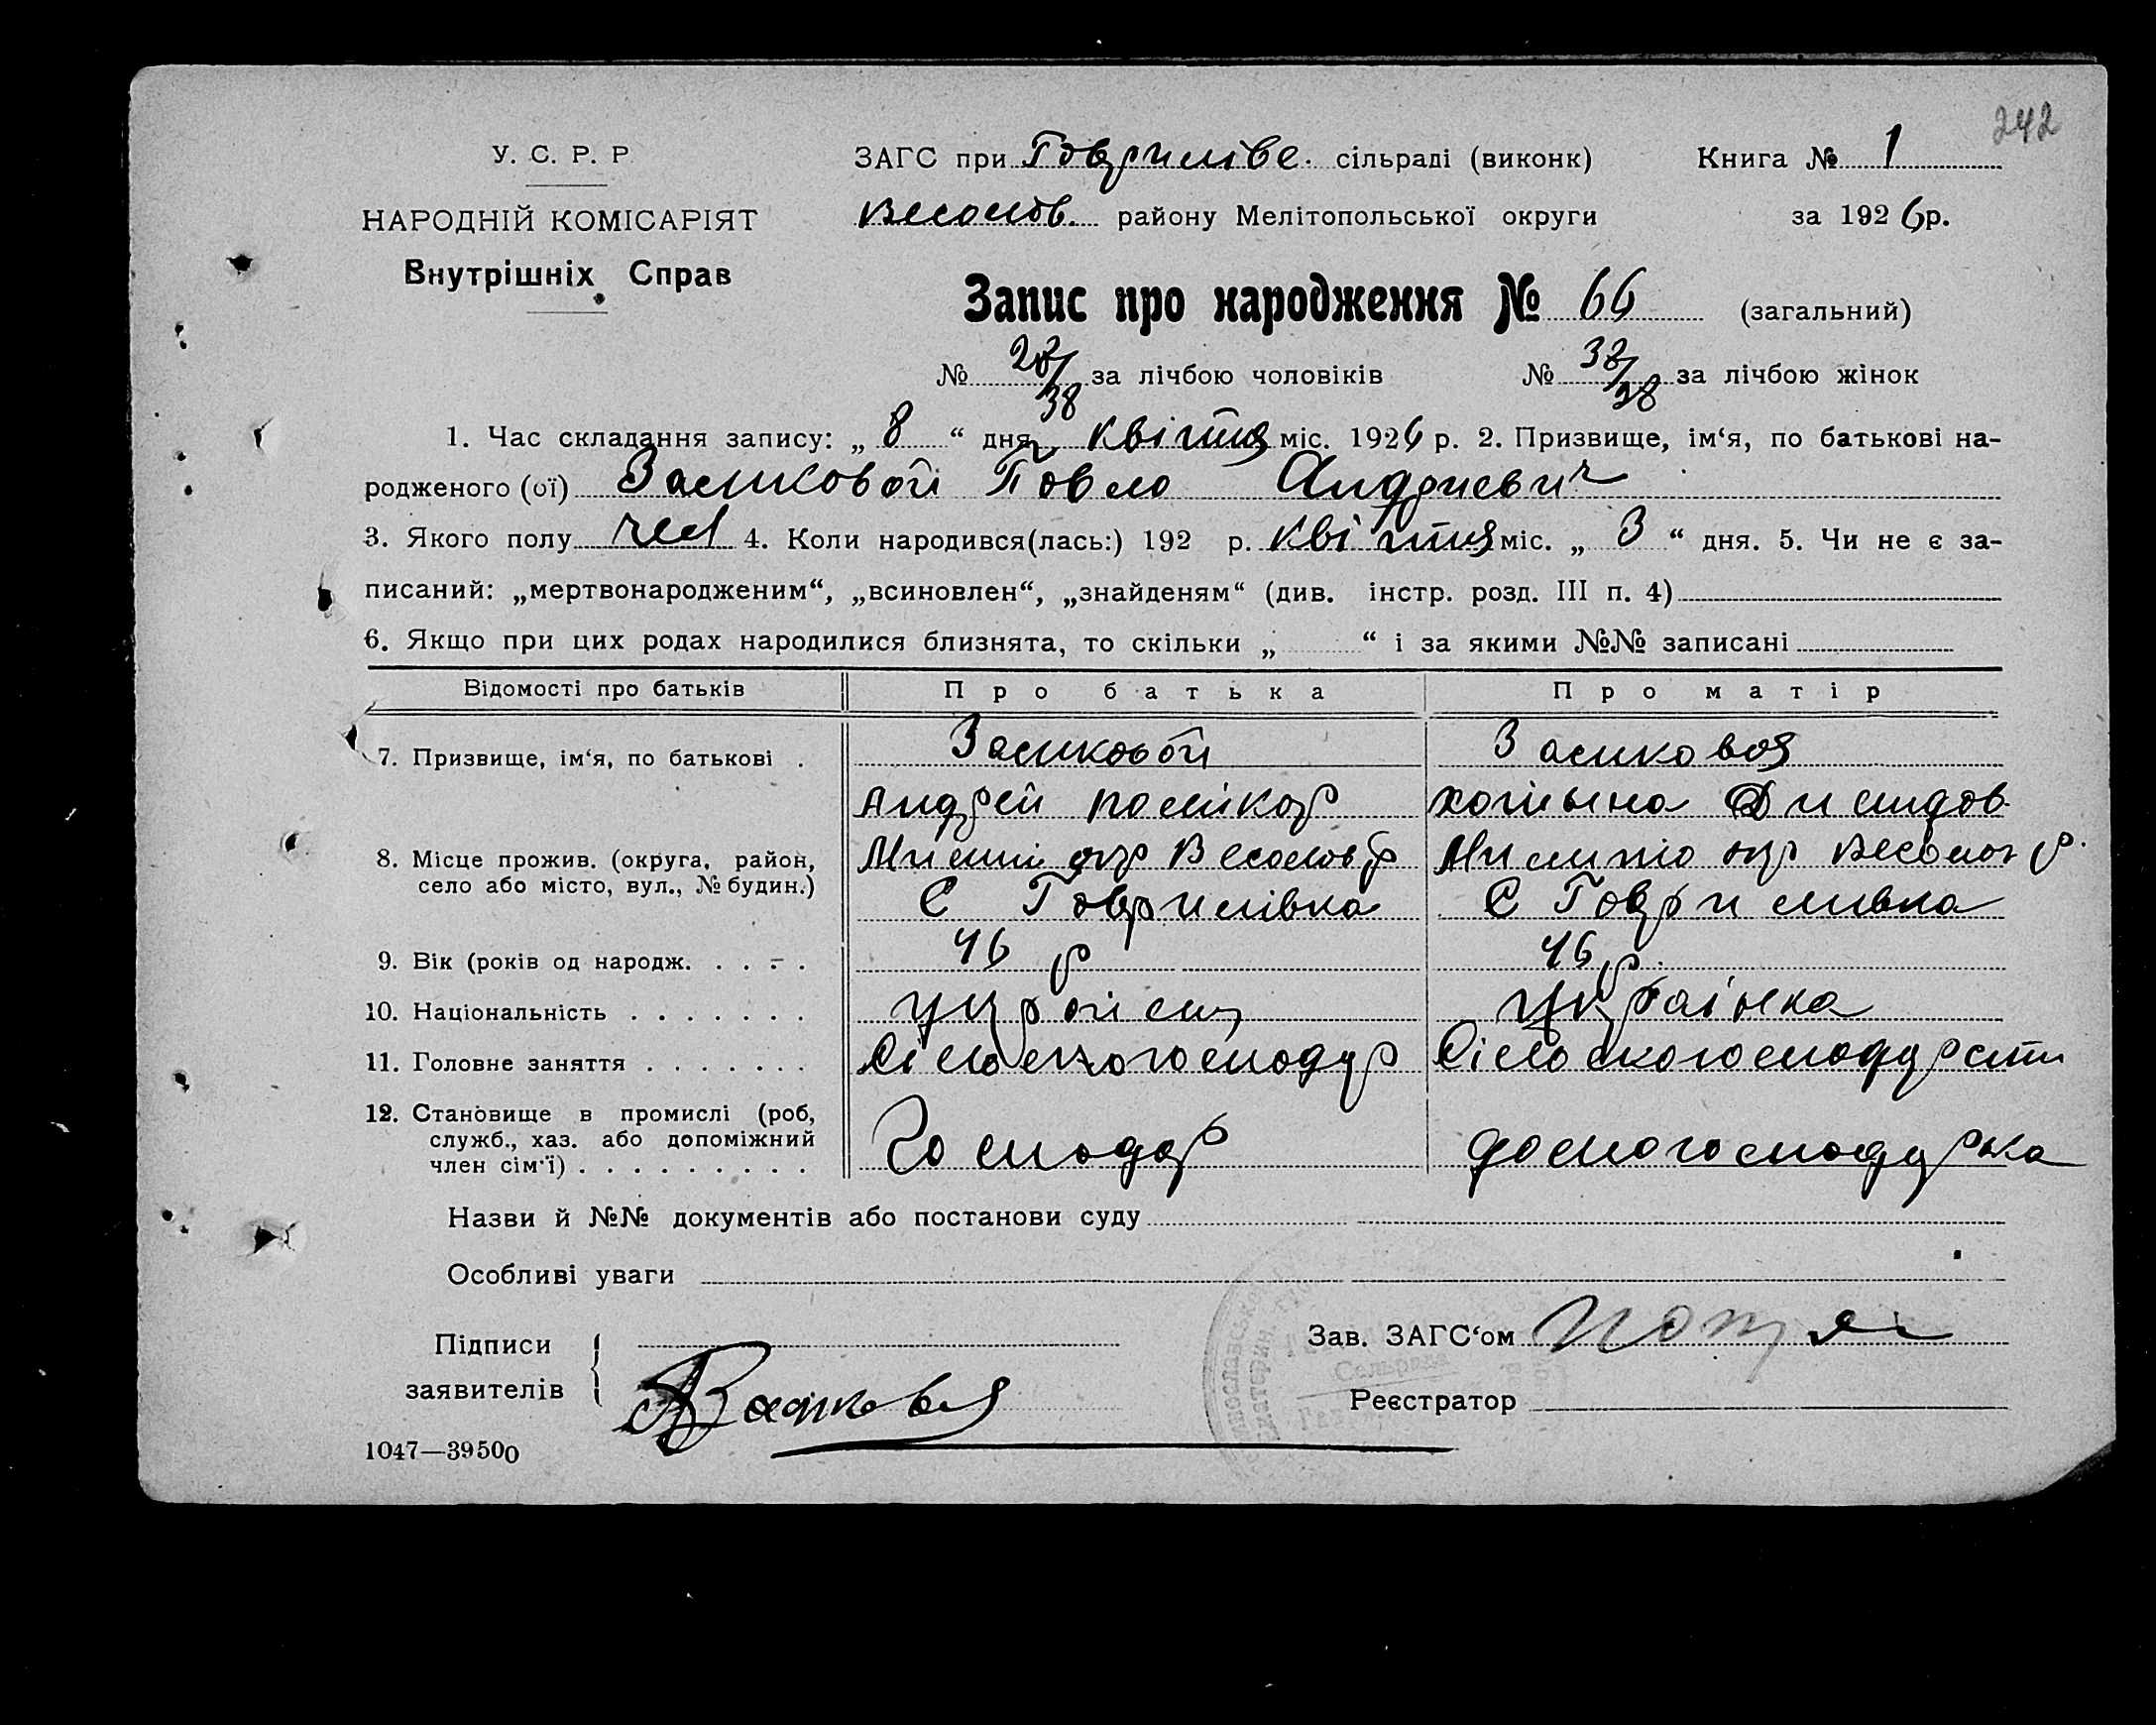 242
У. С. Р. Р
НАРОДНІЙ КОМІСАРІЯТ
Внутрішніх Справ
ЗАГС при Гаврилівс. сільраді (виконк) Книга № 1
Веселов. району Мелітопольської округи за 1926 р.
Запис про народження № 66 (загальний)
№ 28/38 за лічбою чоловіків № 38/28 за лічбою жінок
1. Час складання запису: „ 8 “ дня квітня міс. 1926 р. 2. Призвище, ім‘я, по батькові на-
родженого (ої) Павло Андриевич
3. Якого полу чол 4. Коли народився(лась:) 192 р. квітня міс. „ 3 “ дня. 5. Чи не є за-
писаний: „мертвонародженим“, „всиновлен“, „знайденям“ (див. інстр. розд. III п. 4)
6. Якщо при цих родах народилися близнята, то скільки „ “ і за якими №№ записані
Відомості про батьків Про батька Про матір
7. Призвище, ім‘я, по батькові .
Андрей Демидов.
8. Місце прожив. (округа, район, село або місто, вул., № будин.)
окр Веселов р окр Веселов р.
С Гаврилівка С Гавриливка
9. Вік (років од народж. . . . . 46 р 46 р.
10. Національність . . . . . . . українец українка
11. Головне заняття . . . . . . .
12. Становище в промислі (роб, служб., хаз. або допоміжний член сім‘ї) . . . . . . . . . Господар домогосподурка
Назви й №№ документів або постанови суду
Особливі уваги
Підписи заявителів
Зав. ЗАГС‘ом
Реєстратор
1047—39500